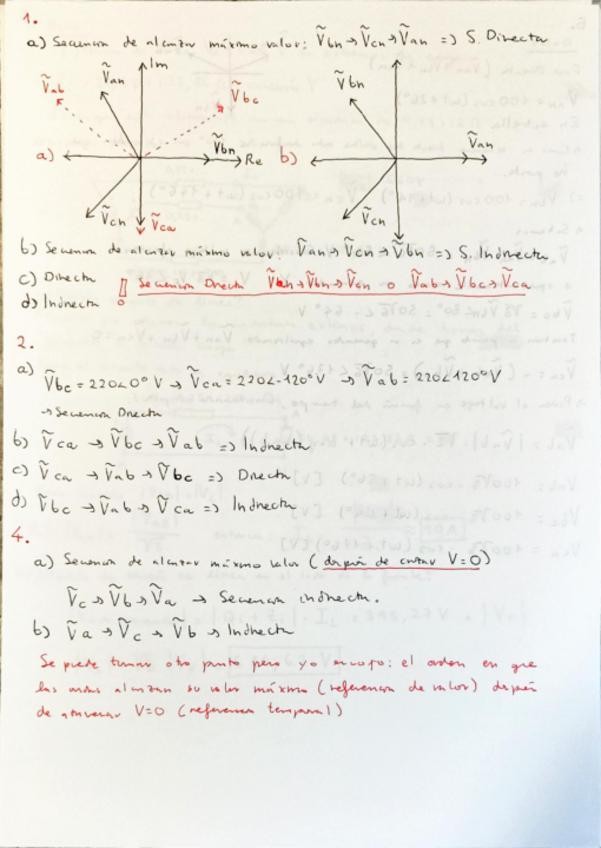 1.
a) Secuencia de alcanzar máximo valor: Ṽbn → Ṽcn → Ṽan => S. Directa
Im
Ṽab
Ṽan
Ṽbc
Ṽbn
a)
Ṽbn
Re
b)
Ṽan
Ṽcn
Ṽca
Ṽcn
b) Secuencia de alcanzar máximo valor: Ṽan → Ṽcn → Ṽbn => S. Indirecta
c) Directa
! Secuencia Directa Ṽan → Ṽbn → Ṽcn o Ṽab → Ṽbc → Ṽca
d) Indirecta
2.
a) Ṽbc = 220∠0° V → Ṽca = 220∠-120° V → Ṽab = 220∠120° V
→ Secuencia Directa
b) Ṽca → Ṽbc → Ṽab => Indirecta
c) Ṽca → Ṽab → Ṽbc => Directa
d) Ṽbc → Ṽab → Ṽca => Indirecta
4.
a) Secuencia de alcanzar máximo valor (después de cortar V=0)
Ṽc → Ṽb → Ṽa → Secuencia indirecta.
b) Ṽa → Ṽc → Ṽb → Indirecta
Se puede tomar otro punto pero yo escojo: el orden en que
las ondas alcanzan su valor máximo (referencia de valor) después
de atravesar V=0 (referencia temporal)